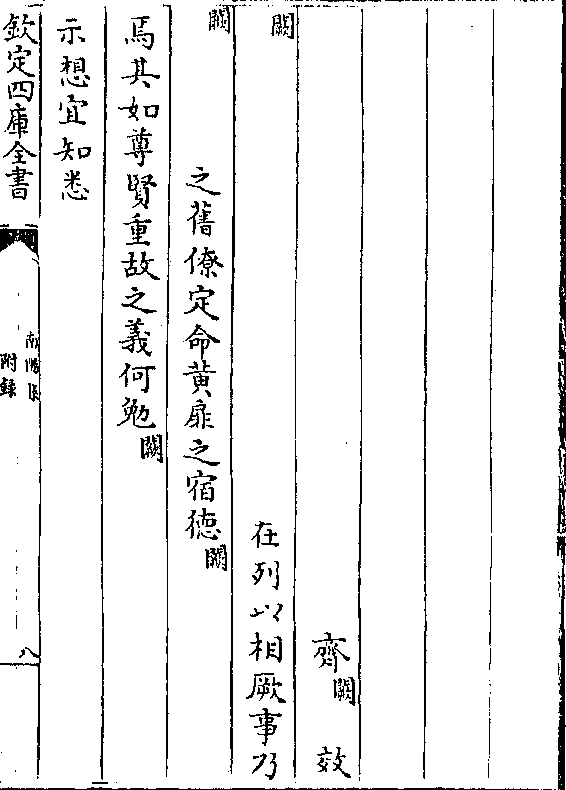 齊闕 效
闕 在列以相厥事乃
闕 之舊僚定命黄扉之宿德闕
焉其如尊賢重故之義何勉闕
示想宜知悉
欽定四庫全書
附錄
八